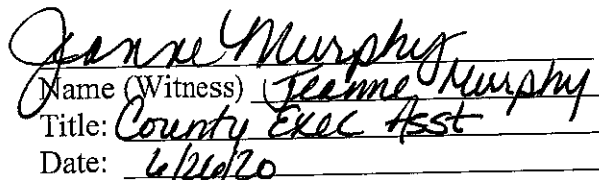 Jeanne Murphy
Name (Witness) Jeanne Murphy
Title: County Exec Asst
Date: 6/26/20